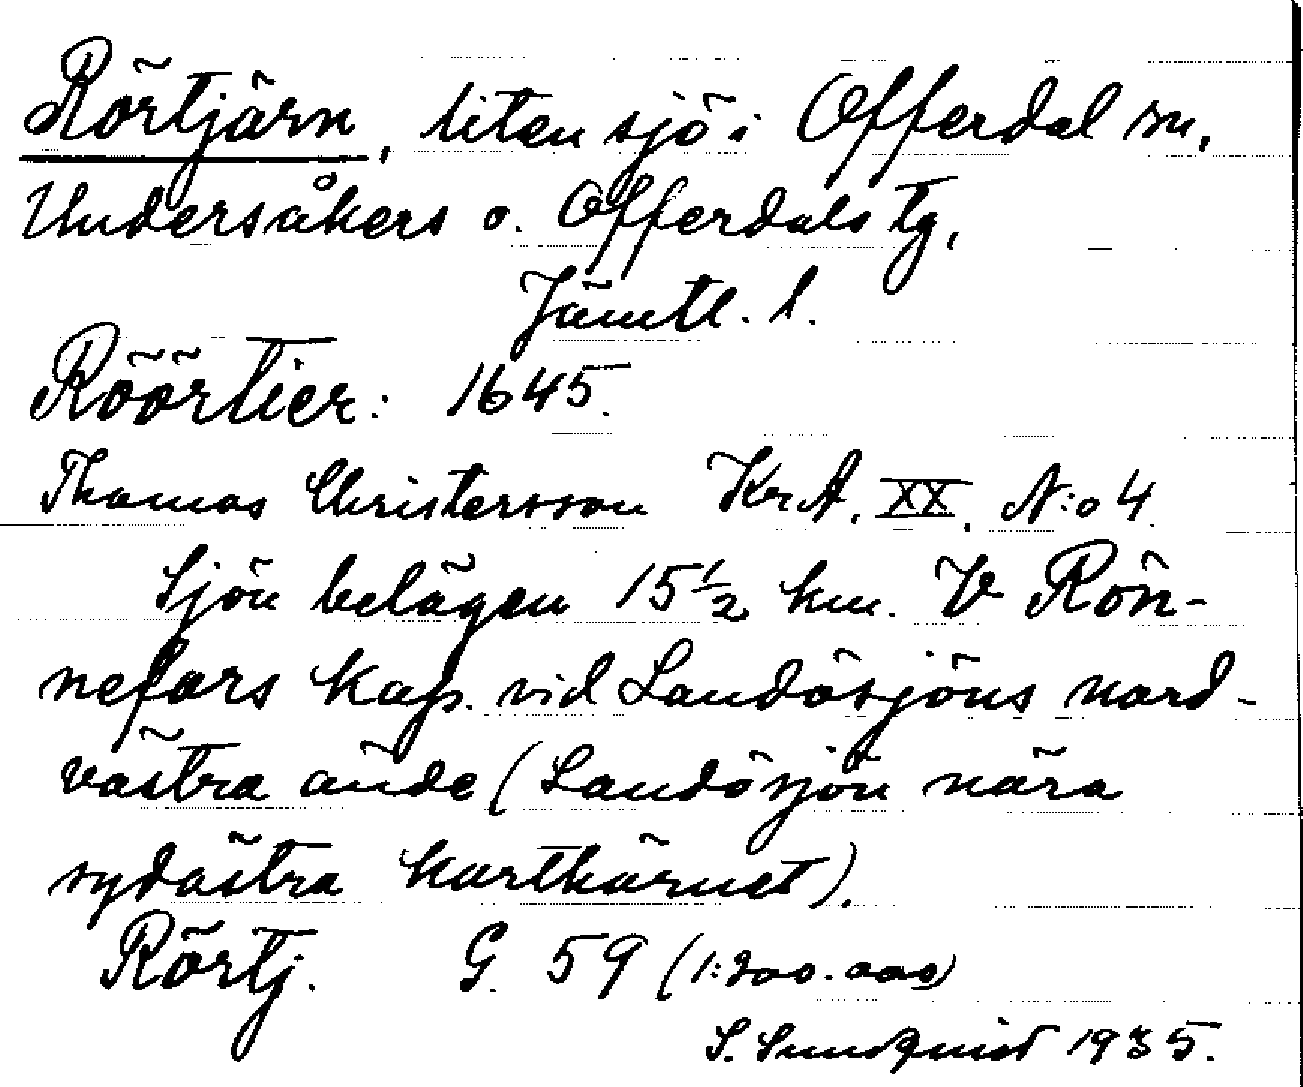 Rörtjärn, liten sjö i Offerdal sn,
Undersåkers o. Offerdals tg,
Jämtl. l.
Röörtier: 1645.
Thomas Christersson KrA. XX. N:o 4.
Sjön belägen 15 1/2 km. V Rön-
nefors kap. vid Landösjöns nord-
västra ände (Landösjön nära
sydöstra karthörnet).
Rörtj. G. 59 (1:200.000)
S. Sundquist 1935.